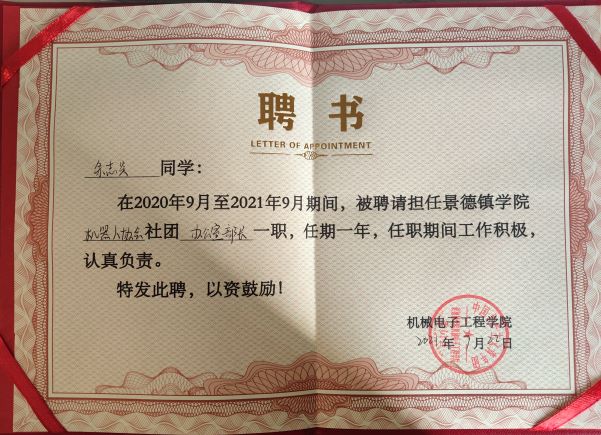 聘书
LETTER OF APPOINTMENT
余志兴 同学：
在2020年9月至2021年9月期间，被聘请担任景德镇学院
机器人协会社团 办公室部长 一职，任期一年，任职期间工作积极，
认真负责。
特发此聘，以资鼓励！
机械电子工程学院
2021年9月22日